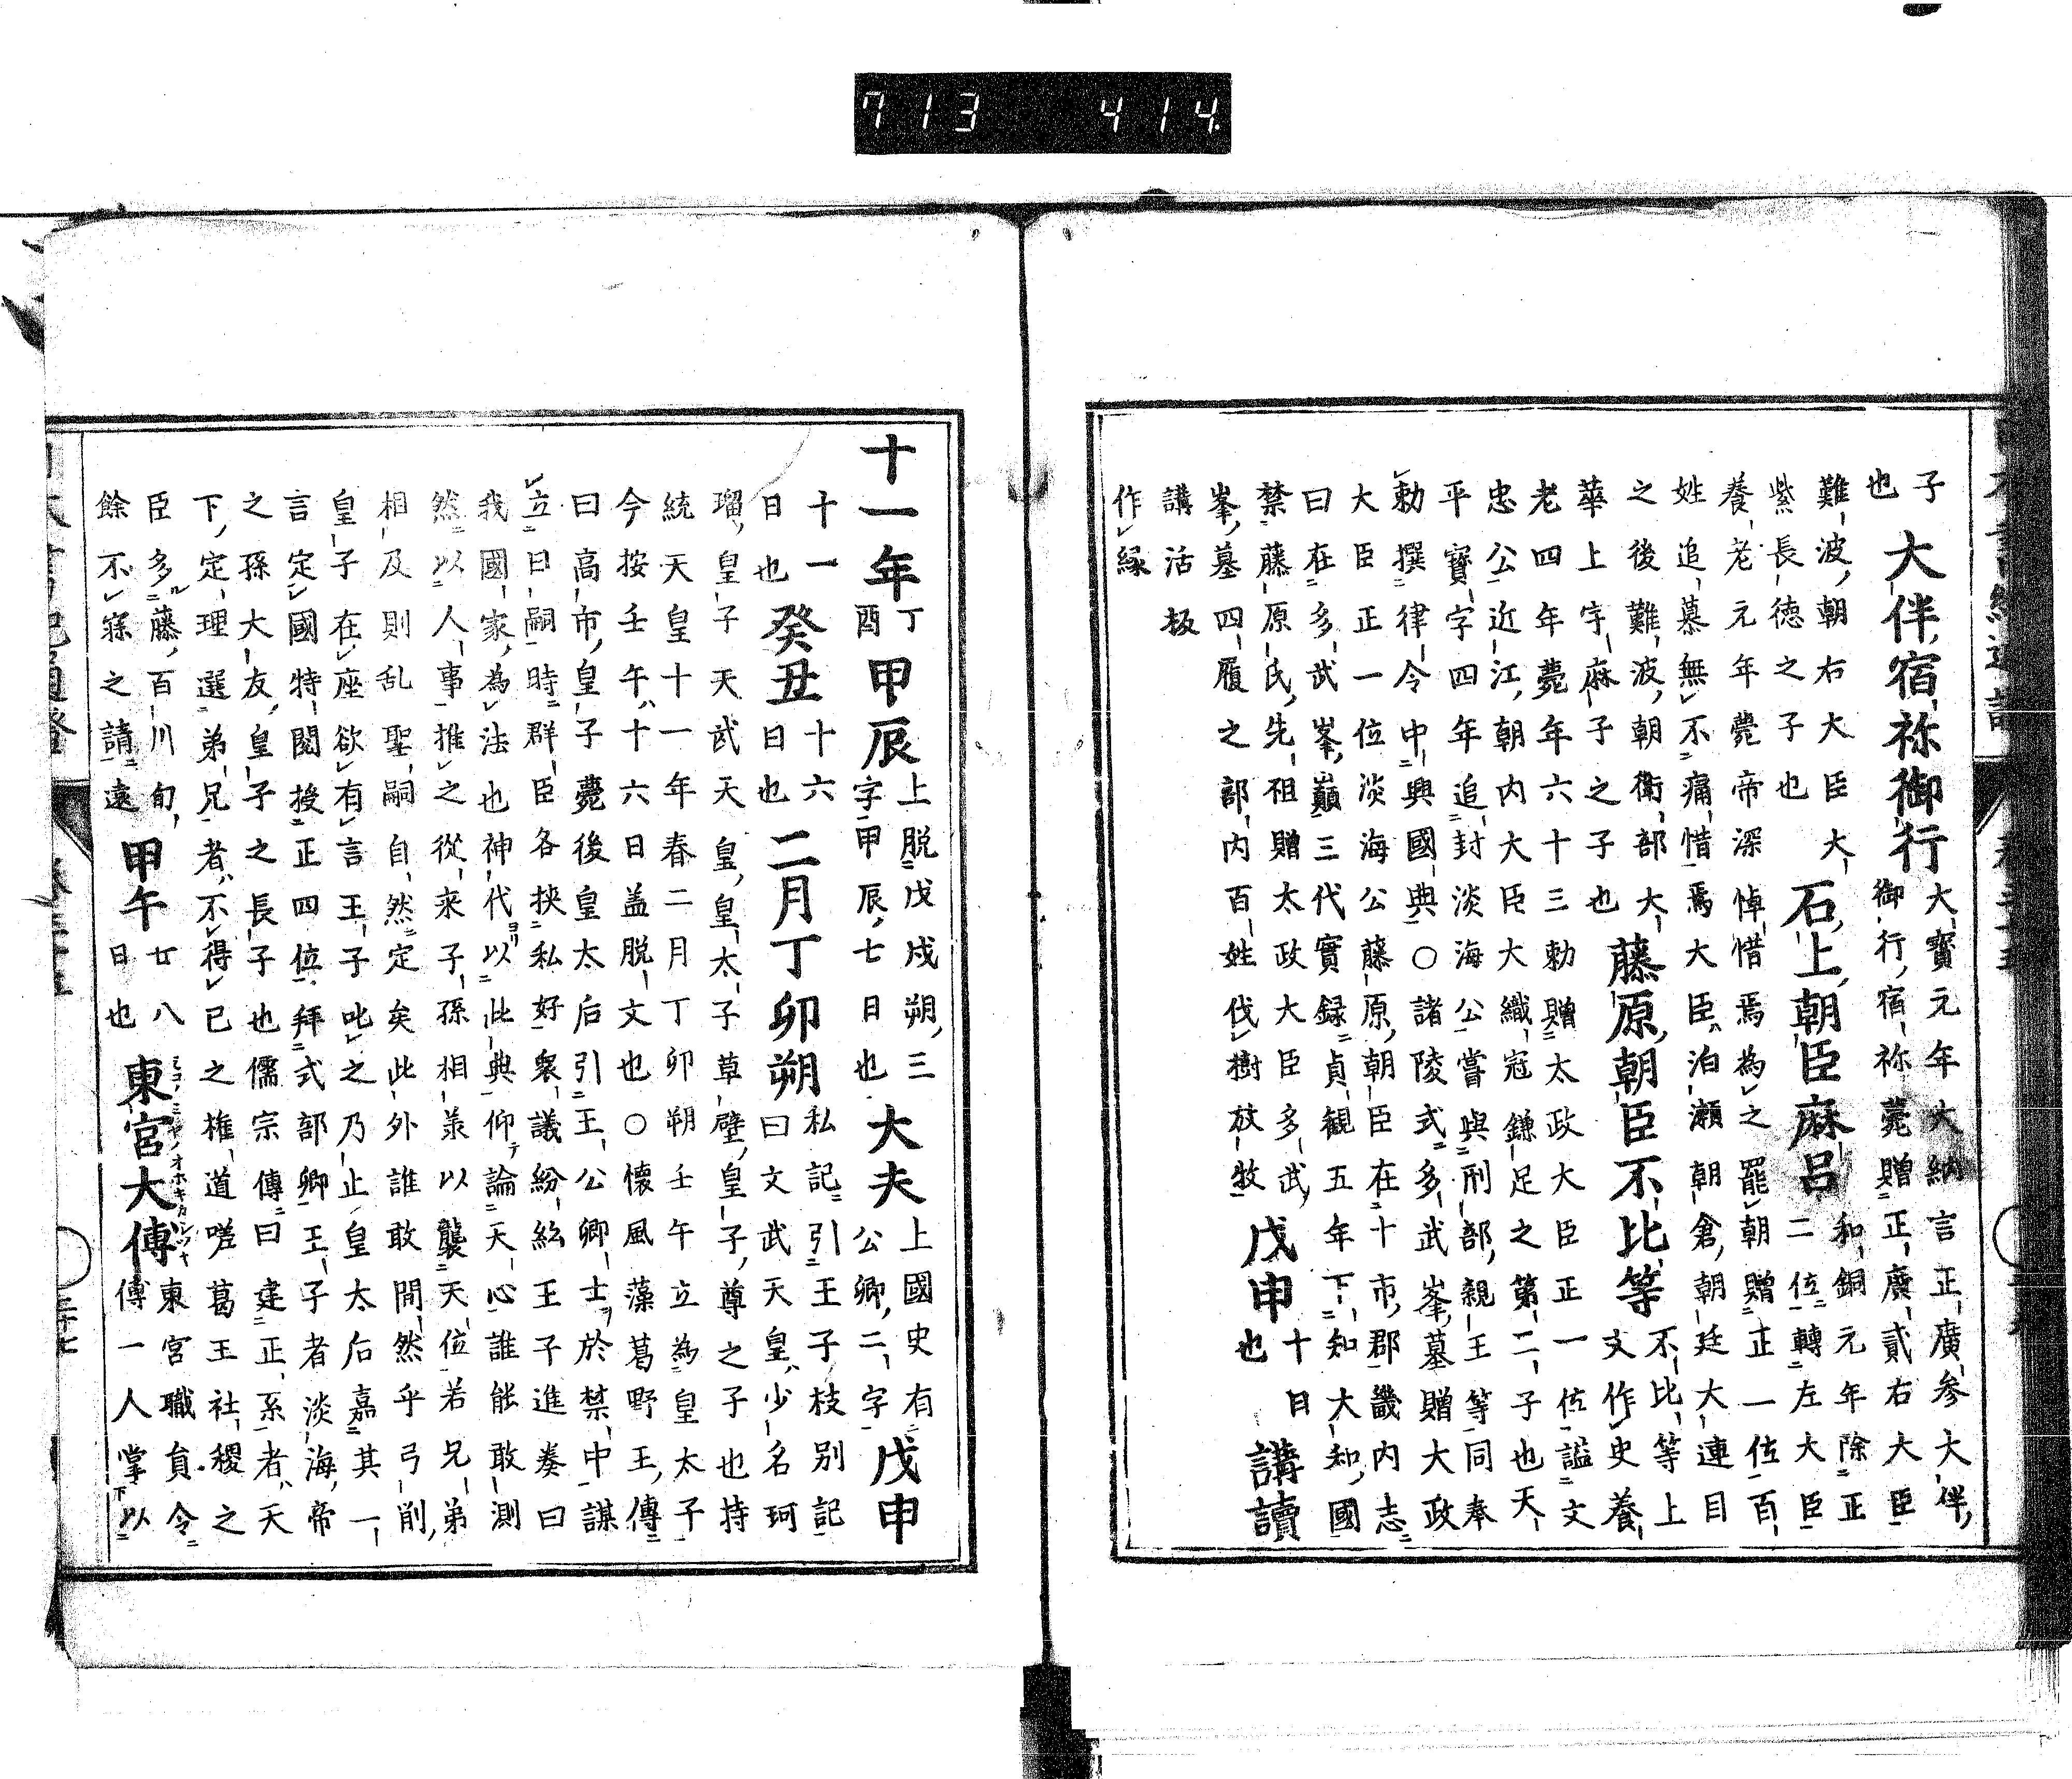 713 414
子　大寶元年大納言正廣参大伴
也　大伴宿祢御行　御行宿祢薨贈正廣貳右大臣
難波朝右大臣大　石上朝臣麻呂　和銅元年除正
紫長徳之子也　二位轉左大臣
養老元年薨帝深悼惜焉為之罷朝贈正一位百
姓追慕無不痛惜焉大臣泊瀬朝倉朝廷大連目
之後難波朝衛部大　藤原朝臣不比等　不比等上
華上宇麻子之子也　文作史養
老四年薨年六十三勅贈太政大臣正一位謚文
忠公近江朝内大臣大織冠鎌足之第二子也天
平寳字四年追封淡海公嘗與刑部親王等同奉
勅撰律令中興國典○諸陵式多武峯墓贈大政
大臣正一位淡海公藤原朝臣在十市郡畿内志
曰在多武峯巓三代實録貞観五年下知大和國
禁藤原氏先祖贈太政大臣多武
峯墓四履之部内百姓伐樹放牧　戊申　十日
也　講讀
講活板
作縁
十一年　丁
酉　甲辰　上脱戊戍朔三
字甲辰七日也　大夫　上國史有
公卿二字　戊申
十一
日也　癸丑　十六
日也　二月丁卯朔　私記引王子枝別記
曰文武天皇少名珂
瑠皇子天武天皇皇太子草壁皇子尊之子也持
統天皇十一年春二月丁卯朔壬午立為皇太子
今按壬午十六日盖脱文也○懐風藻葛野王傳
曰高市皇子薨後皇太后引王公卿士於禁中謀
立日嗣時群臣各挟私好衆議紛紜王子進奏曰
我國家為法也神代ヨリ以此典仰テ論天心誰能敢測
然以人事推之從来子孫相兼以襲天位若兄弟
相及則乱聖嗣自然定矣此外誰敢間然乎弓削
皇子在座欲有言王子叱之乃止皇太后嘉其一
言定國特閲授正四位拜式部卿王子者淡海帝
之孫大友皇子之長子也儒宗傳曰建正系者天
下定理選弟兄者不得已之權道嗟葛王社稷之
臣多藤百川旬　甲午　廿八
日也　東宮大傅　ミコノミヤノオホキカシツキ　東宮職員令
餘不寐之請遠　傅一人掌以